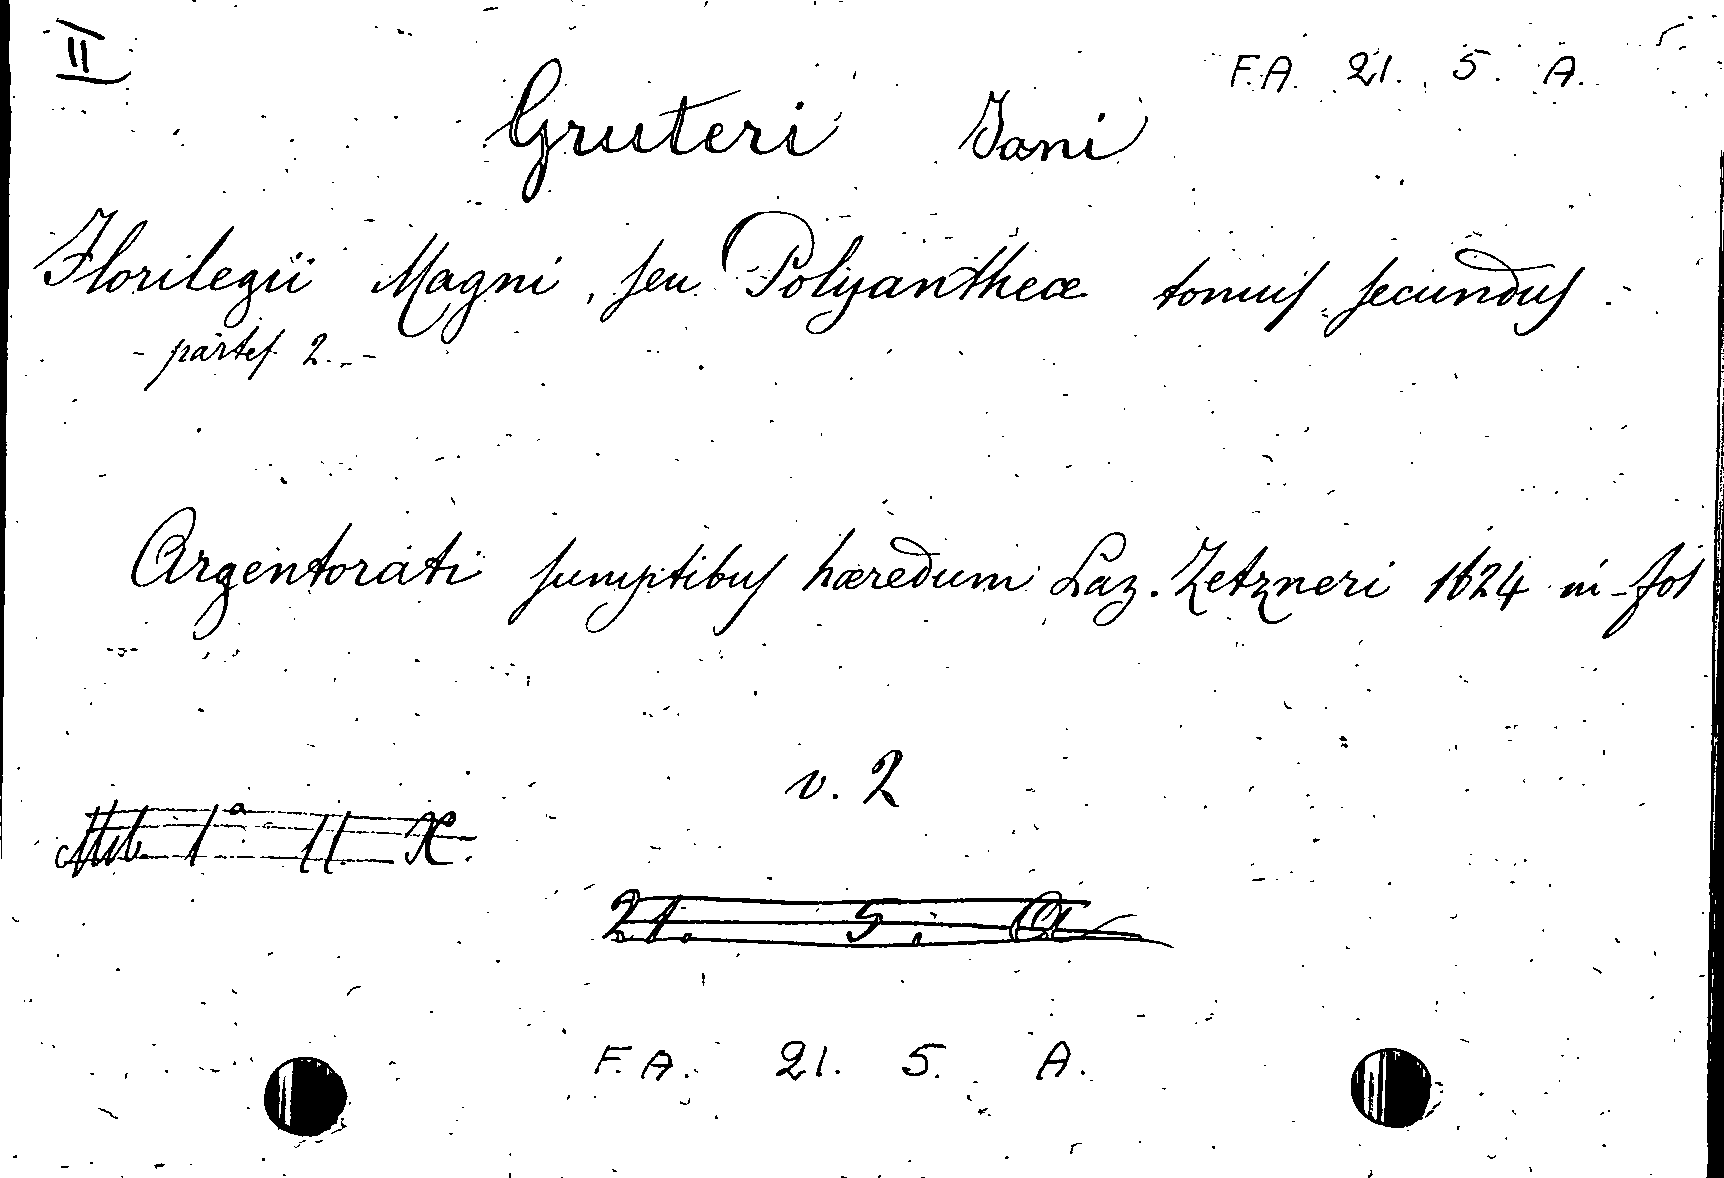 II
F.A. 21. 5. A.
Gruteri Jani
Florilegii Magni, seu Polyantheæ tomus secundus.
- partes 2. -
Argentorati sumptibus hæredum Laz. Zetzneri 1624 in-fol
v. 2
1ª 11
21. 5. A
F.A. 21. 5. A.